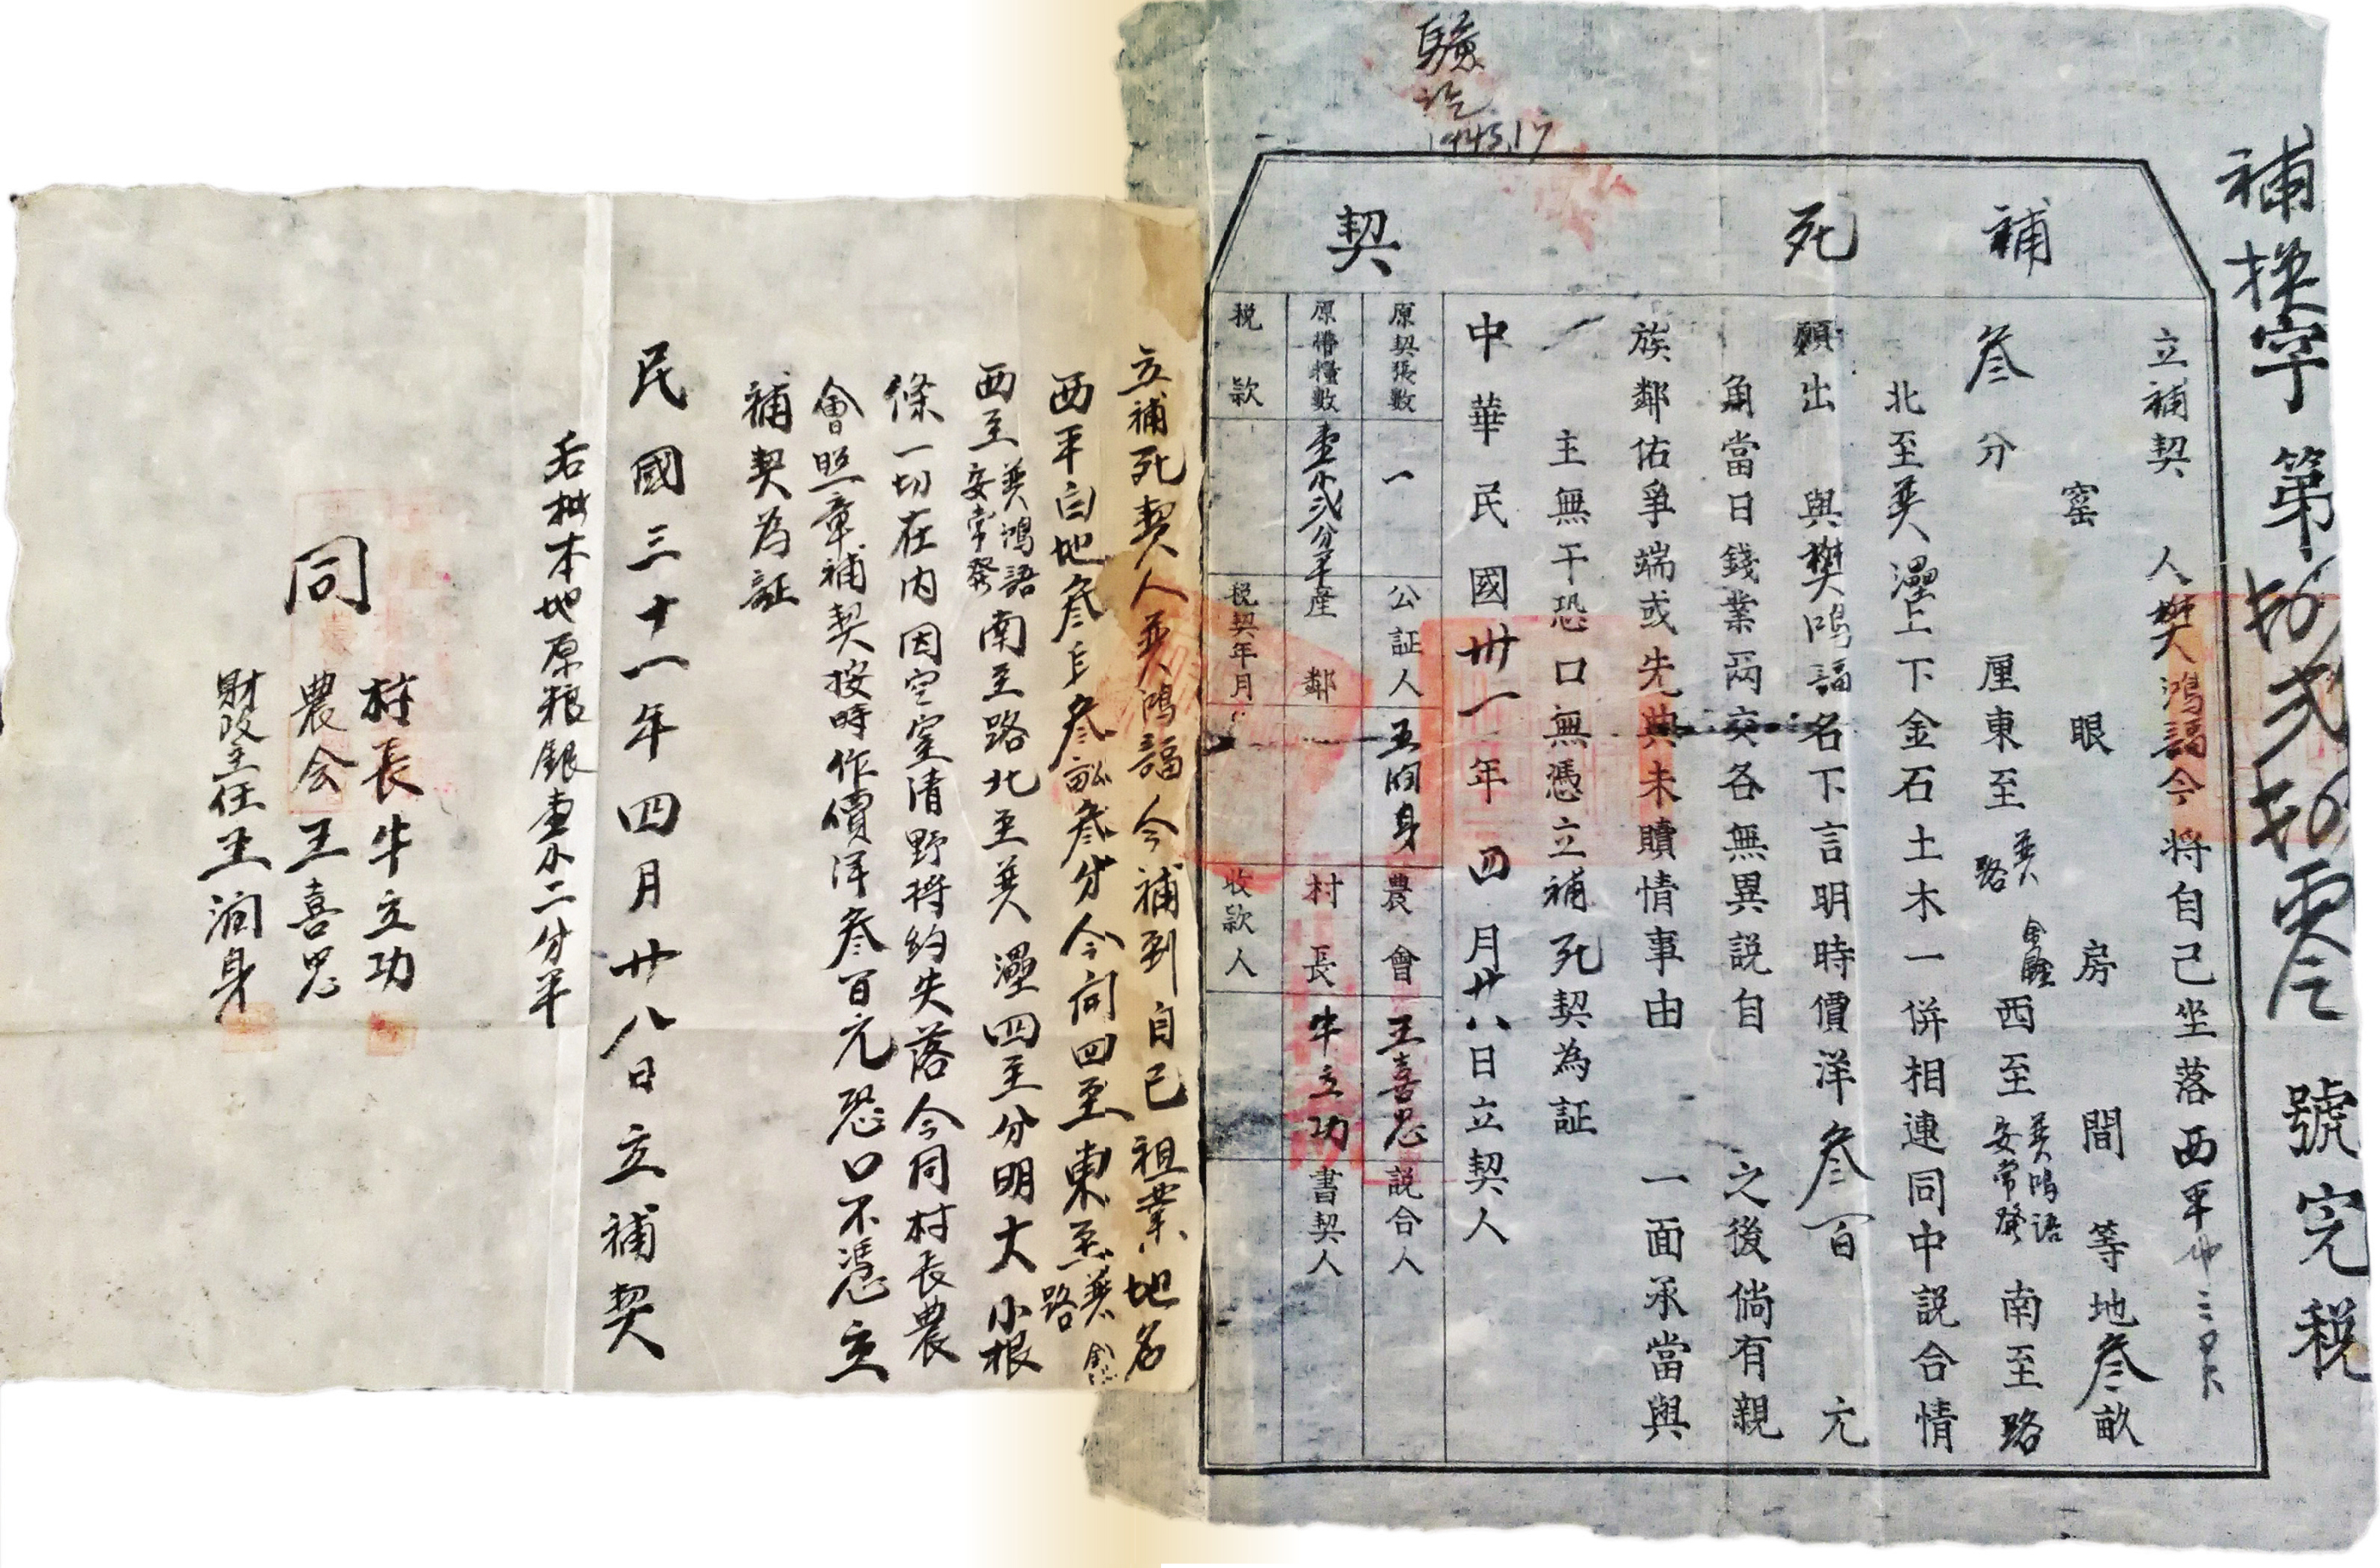 補換字第拾弍拾零號完税
驗訖
1945.1.7
補死契
立補契人樊鴻福今將自己坐落西平
窰眼房間等地叁畝
叁分厘東至 路西至安常發 鴻語南至路
北至 堰上下金石土木一併相連同中説合情
願出與樊鴻福名下言明時價洋叁百元
角當日錢業兩交各無異説自之後倘有親
族鄰佑爭端或先典未贖情事由一面承當與
主無干恐口無憑立補死契為証
中華民國卅一年四月廿八日立契人
原契張數一公証人王潤身農會王喜思説合人
原帶糧數壹 弍分平産鄰村長牛立功書契人
税款税契年月收款人
立補死契人 鴻福今補到自己祖業地名
西平白地叁 叁畝叁分今向四至東至 路
西至 鴻語安常發南至路北至 堰四至分明大小根
條一切在内因空室清野將約失落今同村長農
會照章補契按時作價洋叁百元恐口不憑立
補契為証
民國三十一年四月廿八日立補契
后批本地原粮銀壹 二分平
同
村長牛立功
農会王喜思
財政主任王润身